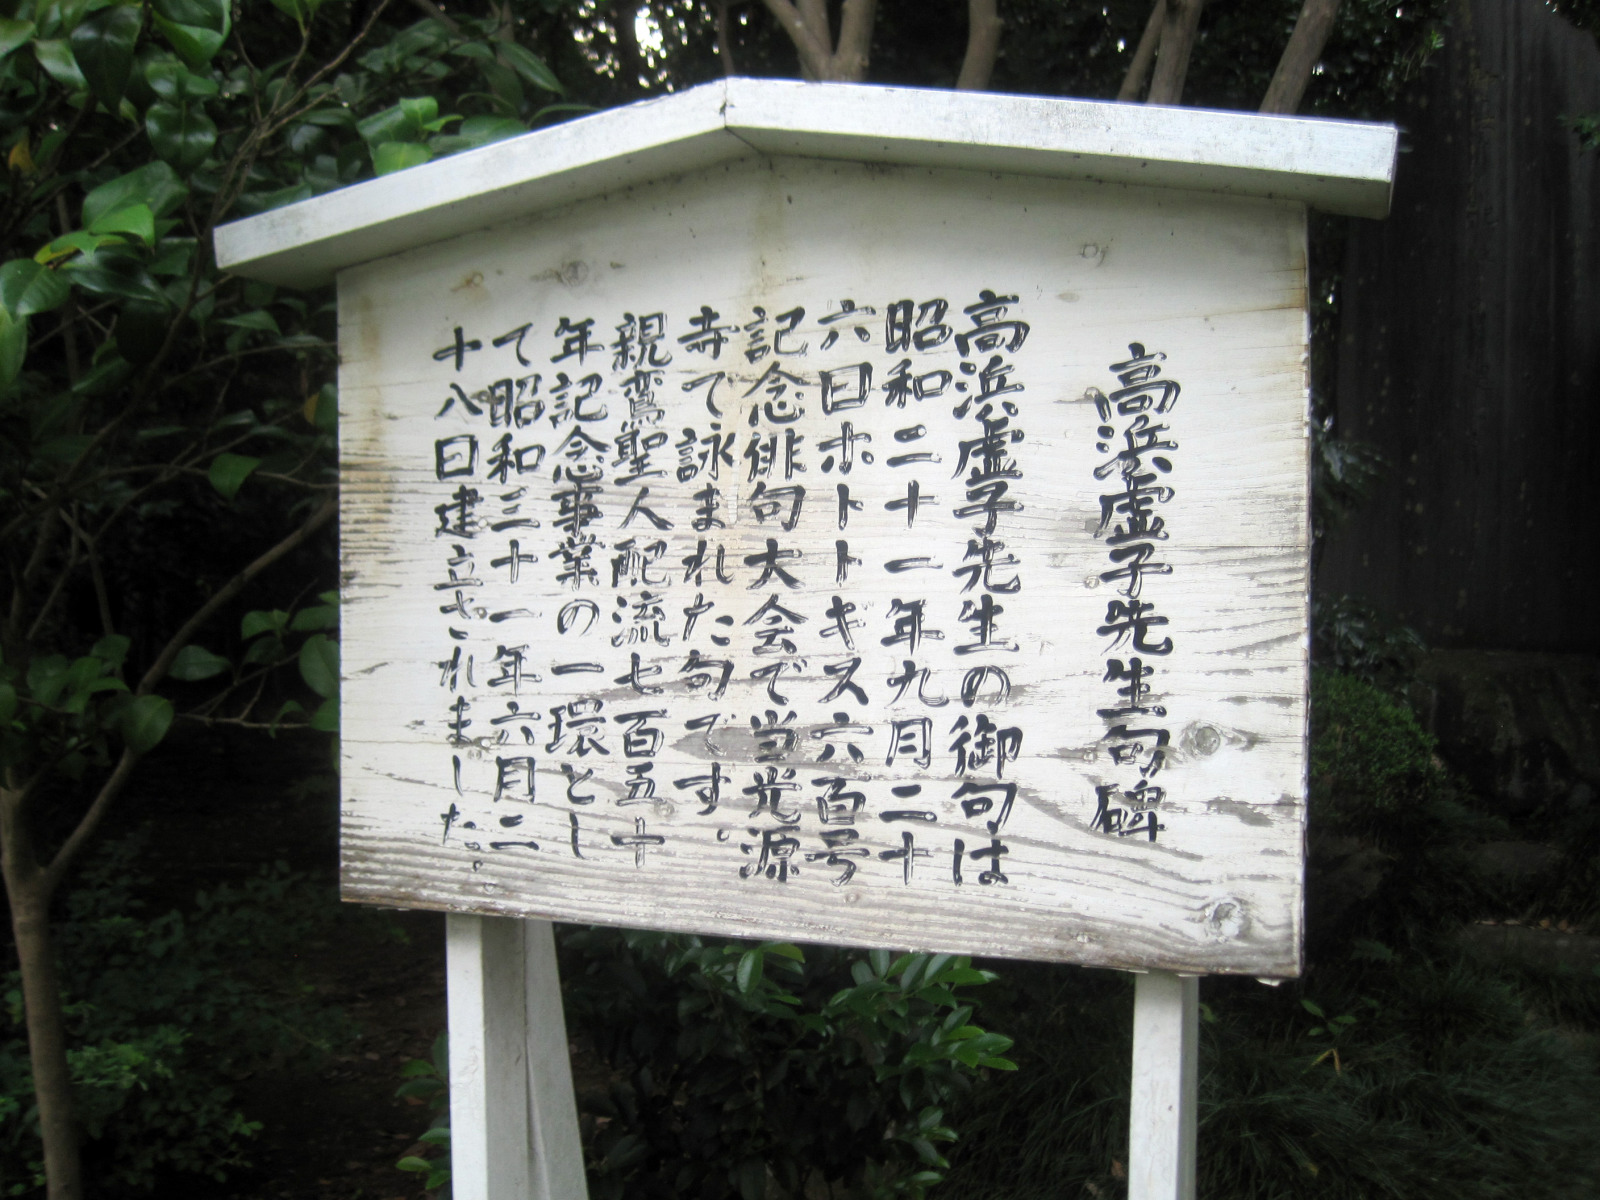 高浜虚子先生句碑
高浜虚子先生の御句は
昭和二十一年九月二十
六日ホトトギス六百号
記念俳句大会で当光源
寺で詠まれた句です。
親鸞聖人配流七百五十
年記念事業の一環とし
て昭和三十一年六月二
十八日建立されました。